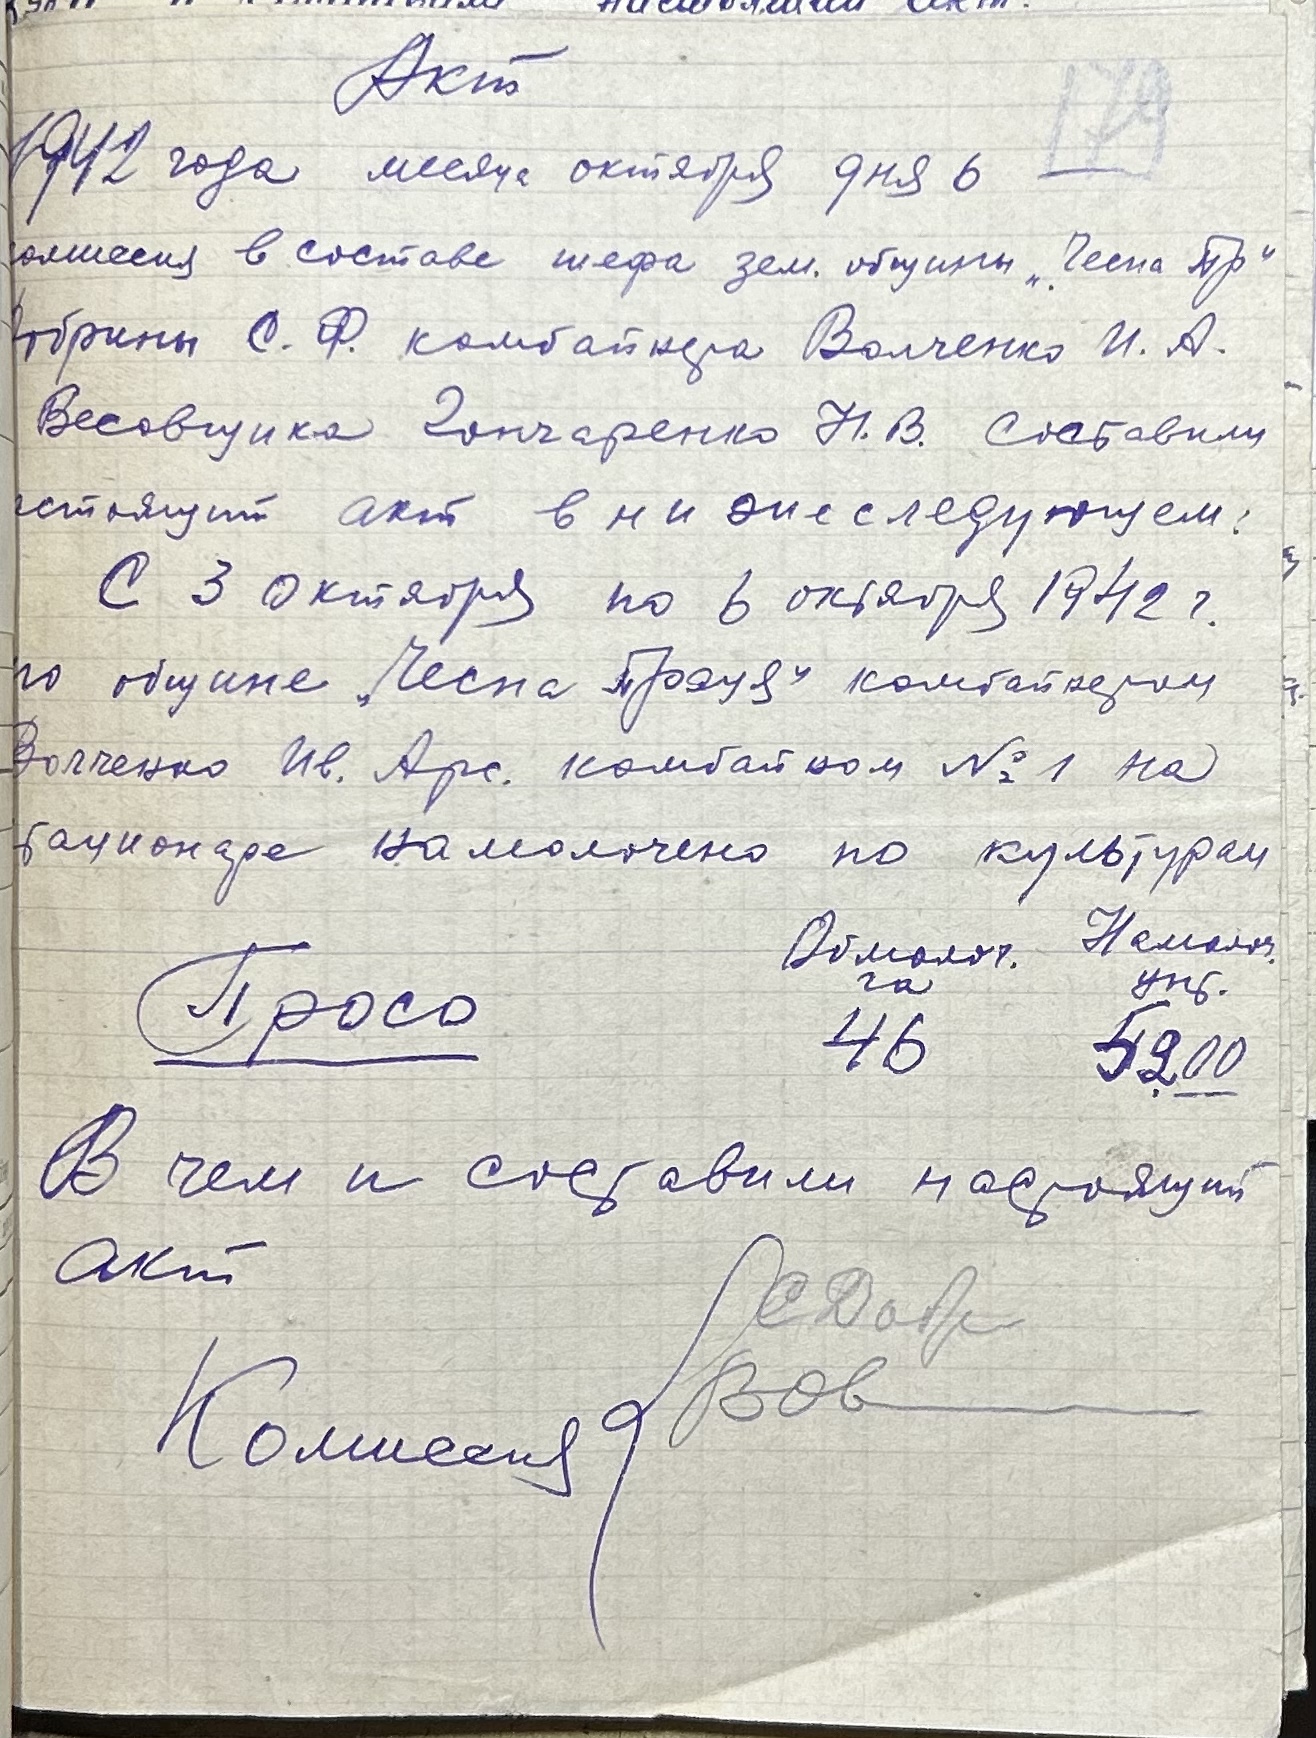 настоящий акт.
179
Акт
1942 года месяца октября дня 6
омиссия в составе шефа зем. общины „Чесна Пр"
обрины С. Ф. комбайнера Волченко И. А.
Весовщика Гончаренко Н. В. составили
астоящий акт в нижеследующем:
С 3 октября по 6 октября 1942 г.
по общине „Чесна Праця" комбайнером
Волченко Ив. Арс. комбайном № 1 на
тационаре намолочено по культурам
Обмолоч. га Намолоч. цнт.
Просо 46 52,00
В чем и составили настоящий
акт
Комиссия
С Добр